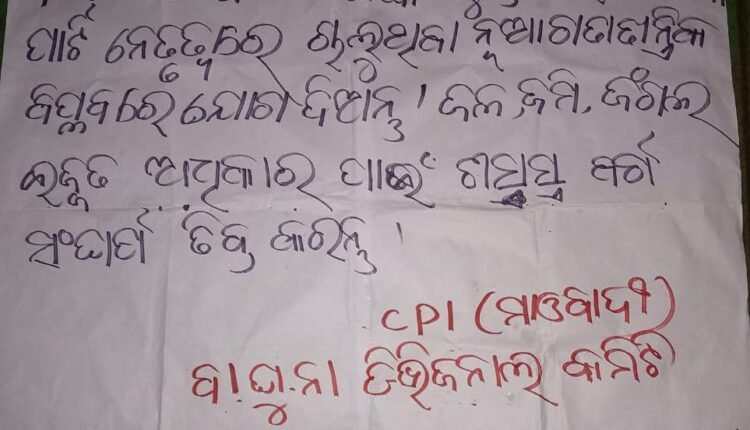 ପାର୍ଟି ନେତୃତ୍ୱରେ ଚାଲୁଥିବା ନୂଆଗଣତାନ୍ତ୍ରିକ
ବିପ୍ଲବରେ ଯୋଗ ଦିଅନ୍ତୁ । ଜଳ, ଜମି, ଜଂଗଲ
ଇଜ୍ଜତ ଅଧିକାର ପାଇଁ ଶସସ୍ତ୍ର ବର୍ଗ
ସଂଘର୍ଷ ତିବ୍ର କରନ୍ତୁ ।
CPI (ମାଓବାଦୀ)
ବା.ଘୁ.ନା ଡିଭିଜନାଲ କମିଟି